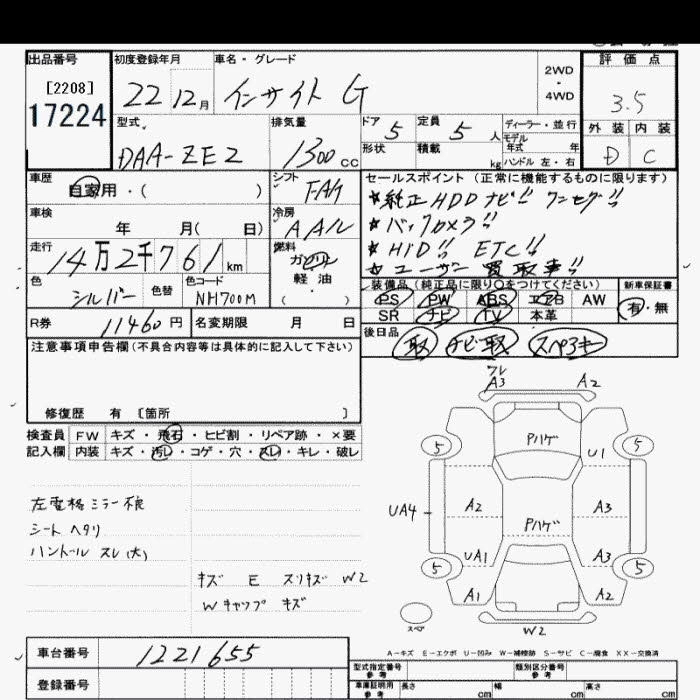 出品番号 初度登録年月 車名・グレード 2WD・4WD 評価点
[2208]
17224
22 12月 インサイト G 3.5
外装 内装
D C
型式 排気量 ドア 5 定員 5人 ディーラー・並行
DAA-ZE2 1300cc 形状 積載 kg モデル年式 年
ハンドル 左・右
車歴 シフト セールスポイント (正常に機能するものに限ります)
自家用・( ) FAT ★純正HDDナビ!! ワンセグ!!
車検 冷房 ★バックカメラ!!
年 月( 日) AAC ★HID!! ETC!!
走行 燃料 ★ユーザー買取車!!
14万2千761km ガソリン
軽油
( )
色 色替 色コード 装備品 (純正品に限り○をつけてください) 新車保証書
シルバー NH700M PS PW ABS エアB AW 有・無
SR ナビ TV 本革
R券 11460円 名変期限 月 日 後日品
取 ナビ取 スペアキー
注意事項申告欄 (不具合内容等は具体的に記入して下さい)
修復歴 有 [箇所 ]
検査員 FW キズ・飛石・ヒビ割・リペア跡・×要
記入欄 内装 キズ・汚レ・コゲ・穴・スレ・キレ・破レ
左電格ミラー不良
シート ヘタリ
ハンドル スレ(大)
キズ E スリキズ W2
Wキャップ キズ
ワレ
A3 A2
Pハゲ
5 5
U1
UA4 A2 A3
Pハゲ
UA1 A3
5 5
A1 A2
スペア W2
A-キズ E-エクボ U-凹み W-補修跡 S-サビ C-腐食 XX-交換済
車台番号 1221655
型式指定番号 参考 類別区分番号 参考
登録番号 車庫証明用 参考 長さ cm 幅 cm 高さ cm